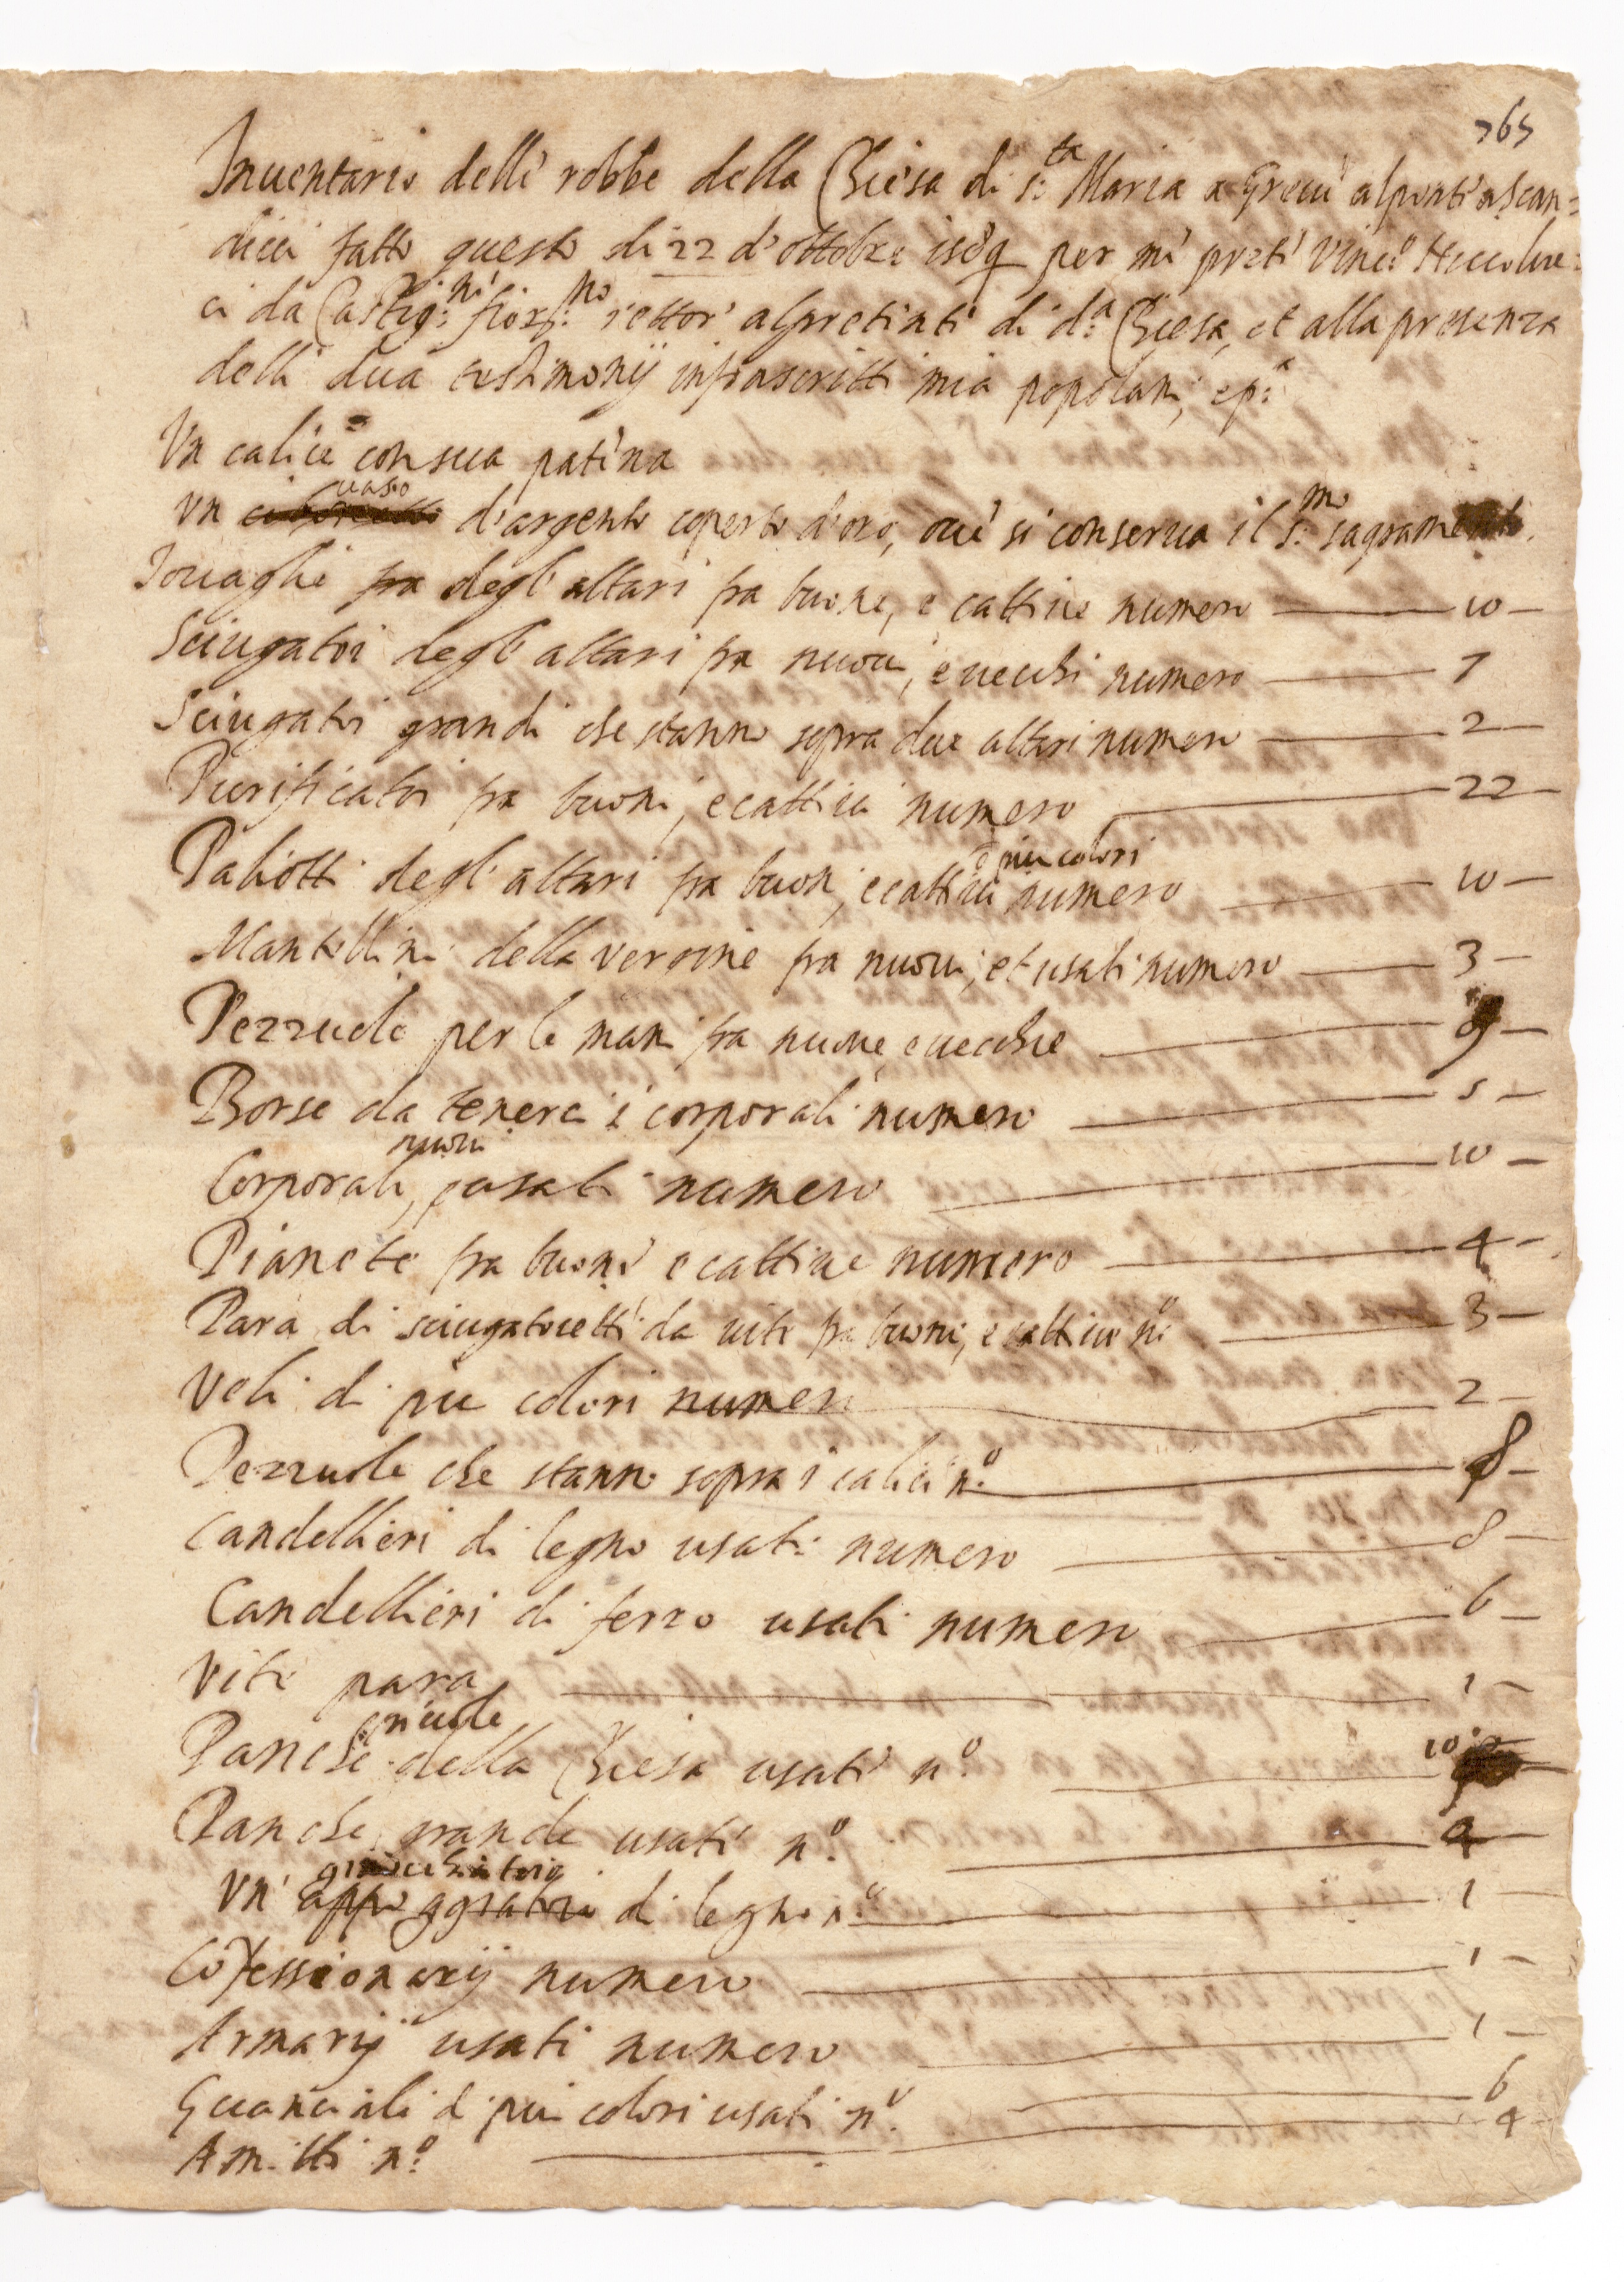 365
Inuentario delle robbe della Chiesa di s.ta Maria a Greui al ponte a Scan=
dicci fatto questo di 22 d'ottobre per me prete Vinc.o
ci da Castig.ni fior.no rettor' al pretinti di d.a Chiesa, et alla presenza
delli dua testimonij infrascritti mia popolani, e p.a
Vn calice con sua patena
Vn vaso d'argento coperto d'oro, oue si conserua il s.mo sagramento.
Touaglie fra degl'altari fra buone, e cattiue numero 10
Sciugatoi degl'altari fra nuoui, e uecchi numero 7
Sciugatoi grandi che stanno sopra due altari numero 2
Purificatoi fra buoni, e cattiui numero 22
Paliotti degl'altari fra buoni, e cattiui e piu colori numero 10
Mantellini della vergine fra nuoui, et usati numero 3
Pezzuole per le mani fra nuoue, e uecchie 9
Borse da tenerci i corporali numero 5
Corporali nuoui, e usati numero 10
Pianete fra buone e cattiue numero 4
Para di sciugatoietti da uite fra buoni, e cattiui n.o 3
Veli di piu colori numero 2
Pezzuole che stanno sopra i calici n.o 8
Candellieri di legno usati numero 8
Candellieri di ferro usati numero 6
Vite para 1
Panche piccole della Chiesa usate n.o 10
Panche grande usate n.o 4
Vn' appoggiatoio inginochiatoio di legno n.o 1
Cofessionarij numero 1
Armarij usati numero 1
Guanciali di piu colori usati n.o 6
Amitti n.o 4